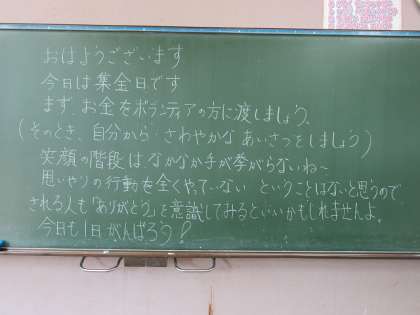 おはようございます
今日は集金日です
まず、お金をボランティアの方に渡しましょう。
(そのとき、自分から、さわやかなあいさつをしましょう)
笑顔の階段はなかなか手が挙がらないね〜
思いやりの行動を全くやっていない ということはないと思うので
される人も「ありがとう」を意識してみるといいかもしれませんよ。
今日も1日がんばろう!